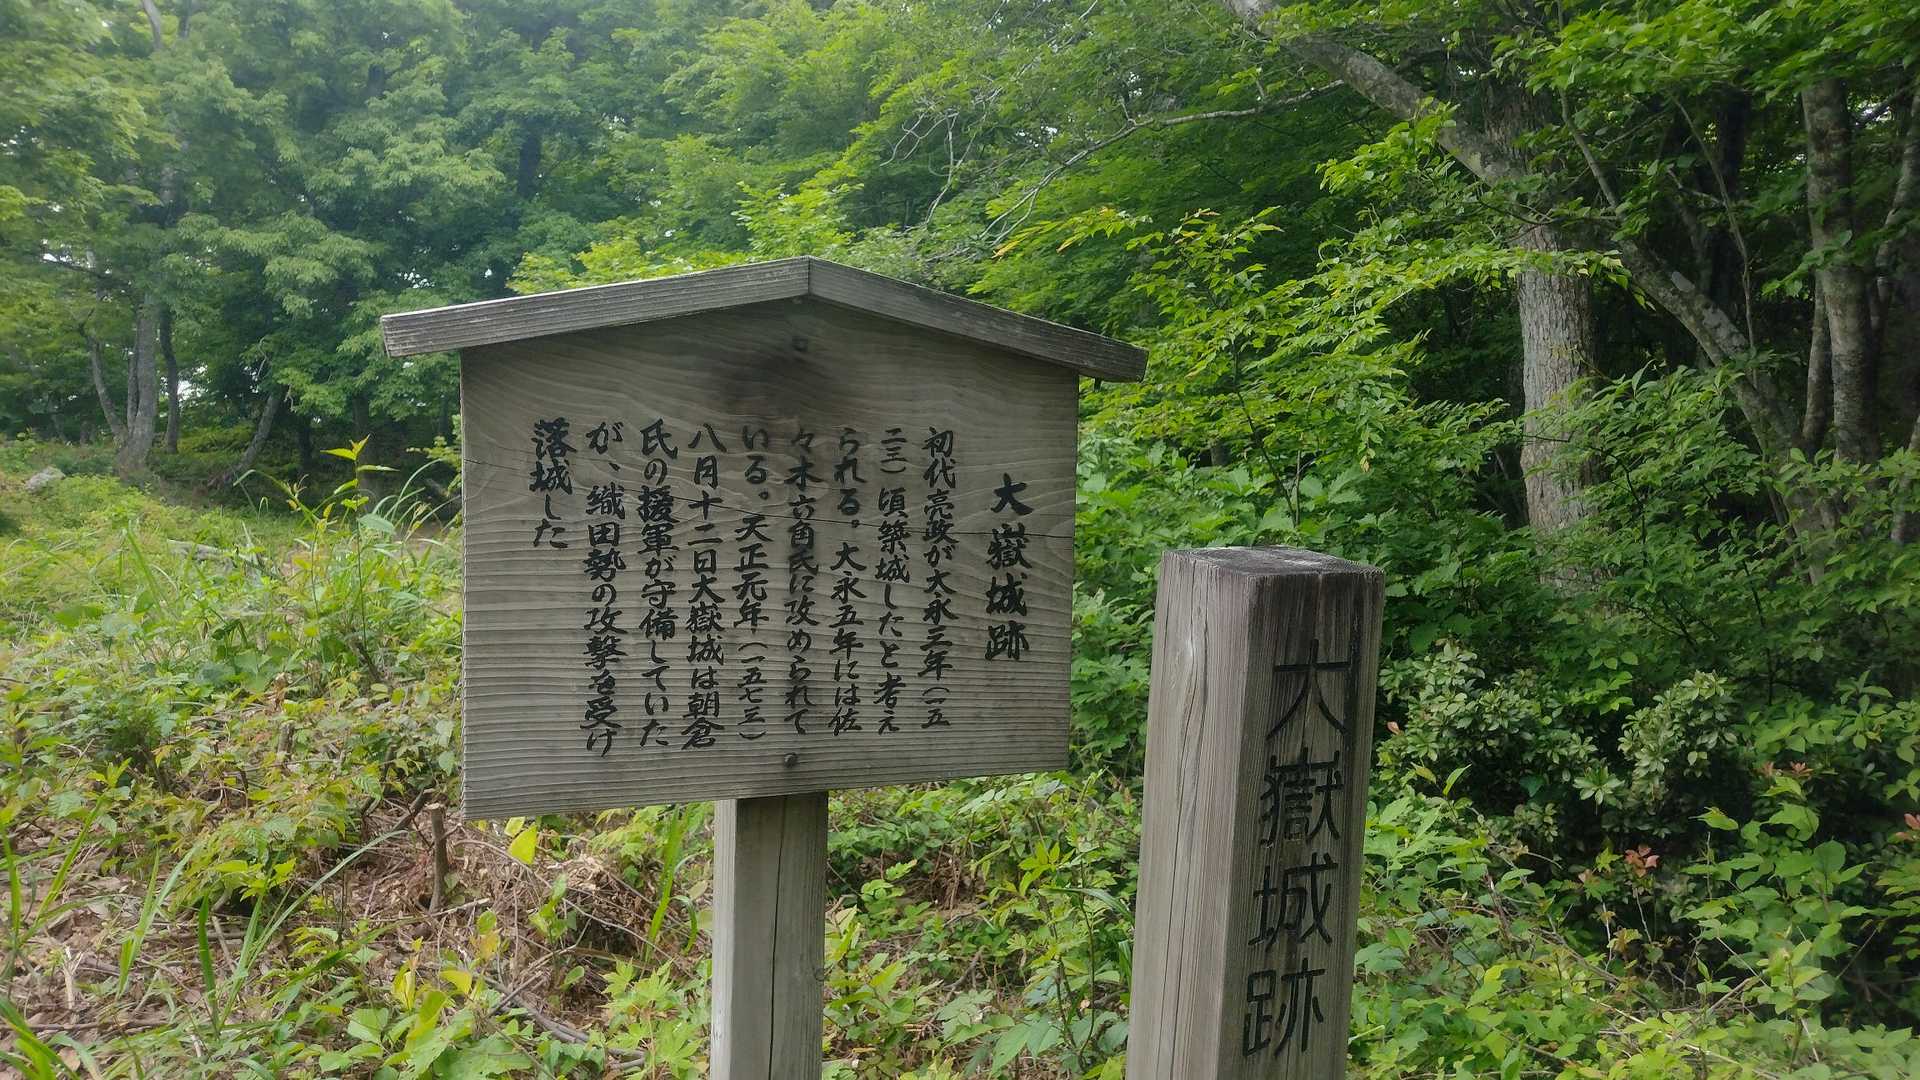 大嶽城跡
初代亮政が大永三年（一五
二三）頃築城したと考え
られる。大永五年には佐
々木六角氏に攻められて
いる。天正元年（一五七三）
八月十二日大嶽城は朝倉
氏の援軍が守備していた
が、織田勢の攻撃を受け
落城した
大嶽城跡